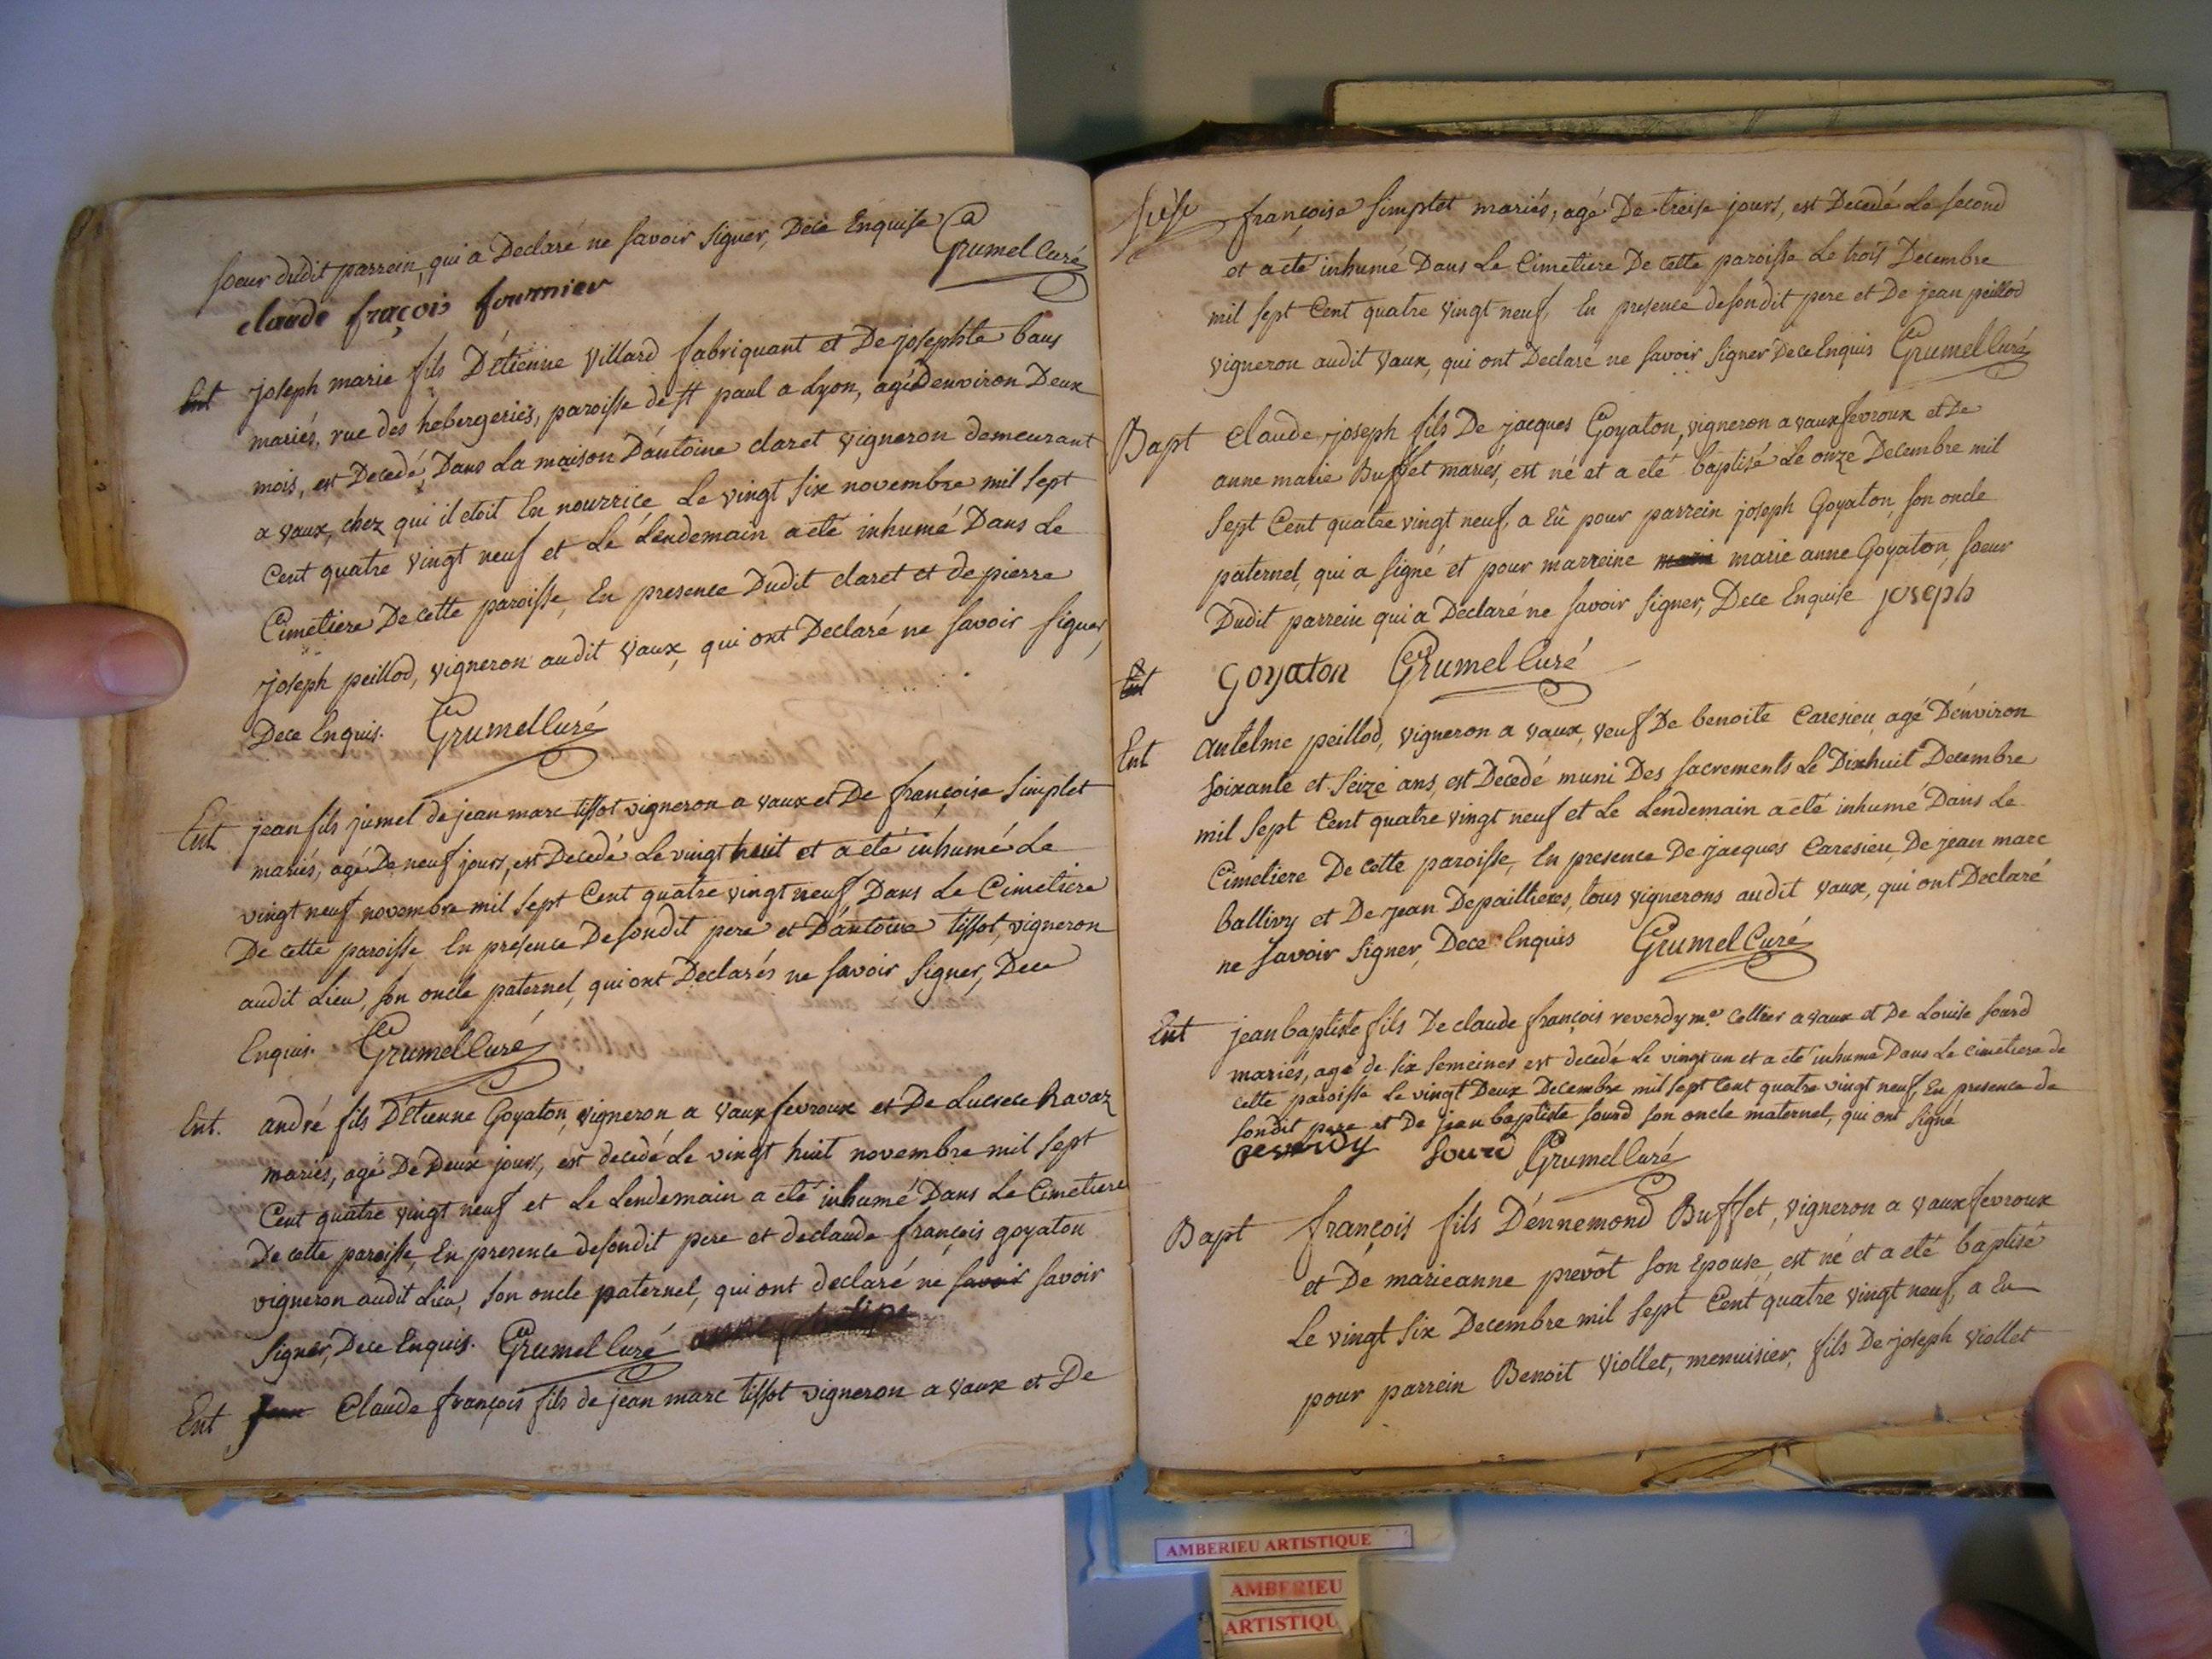 soeur dudit parrein, qui a Declaré ne savoir signer, Dece Enquise
Grumel Curé
claude fraçois fournier
Ent joseph marie fils D'étienne Villard fabriquant et De josephte baus
mariés, rue des hebergeries, paroisse de St paul a Lyon, agé D'environ Deux
mois, est Decedé, Dans La maison D'antoine claret vigneron demeurant
a vaux, chez qui il etoit En nourrice, Le vingt six novembre mil sept
Cent quatre vingt neuf et Le Lendemain a eté inhumé Dans Le
Cimetiere De cette paroisse, En presence Dudit claret et de pierre
joseph peillod, vigneron audit vaux, qui ont Declaré ne savoir signer,
Dece Enquis. Grumel Curé
Ent jean fils jumel de jean marc tissot vigneron a vaux et De françoise simplet
mariés, agé De neuf jours, est Decedé Le vingt huit et a eté inhumé Le
vingt neuf novembre mil sept Cent quatre vingt neuf, Dans Le Cimetiere
De cette paroisse, En presence De sondit pere et D'antoine tissot, vigneron
audit Lieu, son oncle paternel, qui ont Declarés ne savoir signer, Dece
Enquis. Grumel Curé
Ent. andré fils D'étienne Goyaton, vigneron a vaux fevroux et De Lucrece Ravaz
mariés, agé De Deux jours, est decedé Le vingt huit novembre mil sept
Cent quatre vingt neuf et Le Lendemain a eté inhumé Dans Le Cimetiere
De cette paroisse, En presence de sondit pere et de claude françois goyaton
vigneron audit Lieu, son oncle paternel, qui ont declaré ne savoir savoir
signer, Dece Enquis. Grumel Curé
Ent Jean Claude françois fils de jean marc tissot vigneron a vaux et De
françoise simplet mariés, agé De treise jours, est Decedé Le second
et a eté inhumé Dans Le Cimetiere De cette paroisse Le trois Decembre
mil sept Cent quatre vingt neuf, En presence de sondit pere et De jean peillod
vigneron audit vaux, qui ont Declaré ne savoir signer Dece Enquis Grumel Curé
Bapt Claude joseph fils De jacques Goyaton, vigneron a vaux fevroux et De
anne marie Buffet mariés, est né et a eté baptisé Le onze Decembre mil
sept Cent quatre vingt neuf, a Eû pour parrein joseph Goyaton, son oncle
paternel, qui a signé et pour marreine marie marie anne Goyaton, soeur
Dudit parrein qui a Declaré ne savoir signer, Dece Enquise joseph
Ent Goyaton Grumel Curé
Ent antelme peillod, vigneron a vaux, veuf De benoite Caresieu, agé D'environ
soixante et seize ans, est Decedé muni Des sacrements Le Dixhuit Decembre
mil sept Cent quatre vingt neuf et Le Lendemain a eté inhumé Dans Le
Cimetiere De cette paroisse, En presence De jacques Caresieu, De jean marc
Ballivy et De jean Depaillieres, tous vignerons audit vaux, qui ont Declaré
ne savoir signer, Dece Enquis Grumel Curé
Ent jean baptiste fils De claude françois reverdy me cellier a vaux et De Louise sourd
mariés, agé de six semeines est decedé Le vingt un et a eté inhumé Dans Le cimetiere de
cette paroisse Le vingt Deux Decembre mil sept Cent quatre vingt neuf, En presence de
sondit pere et De jean baptiste sourd son oncle maternel, qui ont signé
reverdy sourd Grumel Curé
Bapt françois fils D'ennemond Buffet, vigneron a vaux fevroux
et De marieanne prevôt son Epouse, est né et a eté baptisé
Le vingt six Decembre mil sept Cent quatre vingt neuf, a Eu
pour parrein Benoit Viollet, menuisier, fils De joseph viollet
AMBERIEU ARTISTIQUE
AMBERIEU
ARTISTIQU